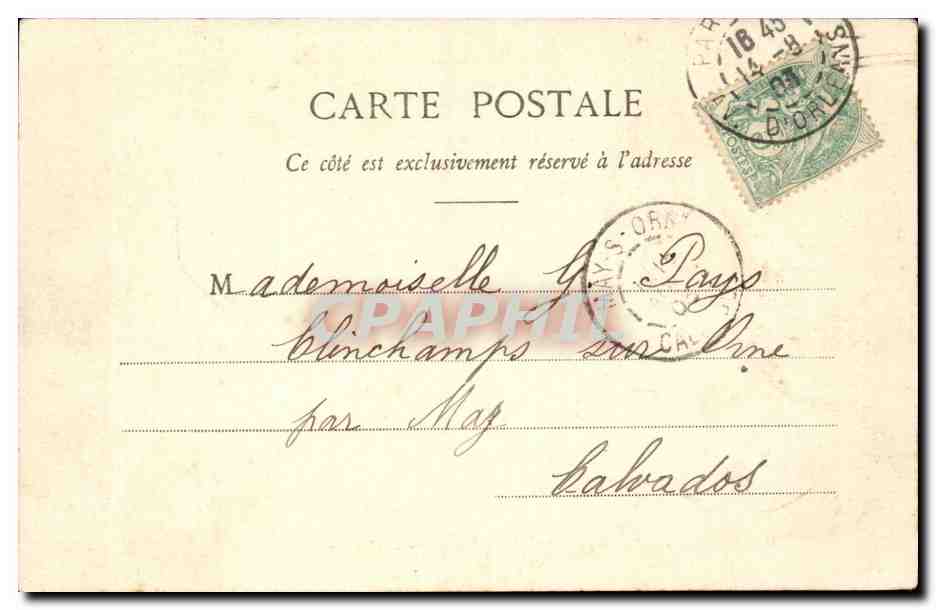 PAR
18 45
14 - 8
03
D'ORLEANS
POSTES
CARTE POSTALE
Ce côté est exclusivement réservé à l'adresse
MAY-S-ORNE
CAL
Mademoiselle G. Pays
CPAPHIL
Clinchamps sur Orne
par May
Calvados